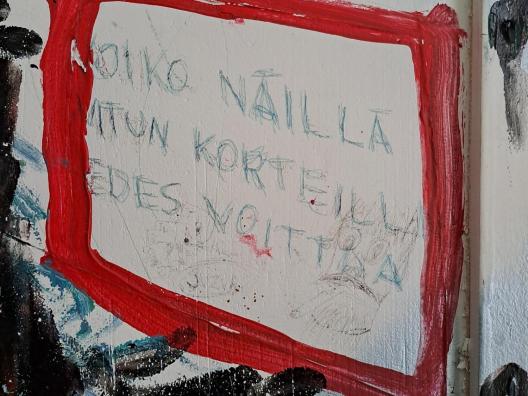 OIKO NÄILLÄ
ITUN KORTEILLA
EDES VOITTAA